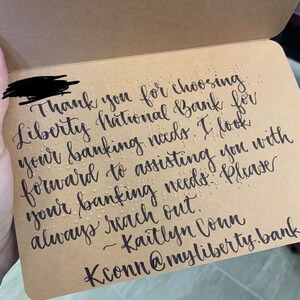 Thank you for choosing
Liberty National Bank for
your banking needs. I look
forward to assisting you with
your banking needs. Please
always reach out.
~ Kaitlyn Conn
Kconn@myliberty.bank